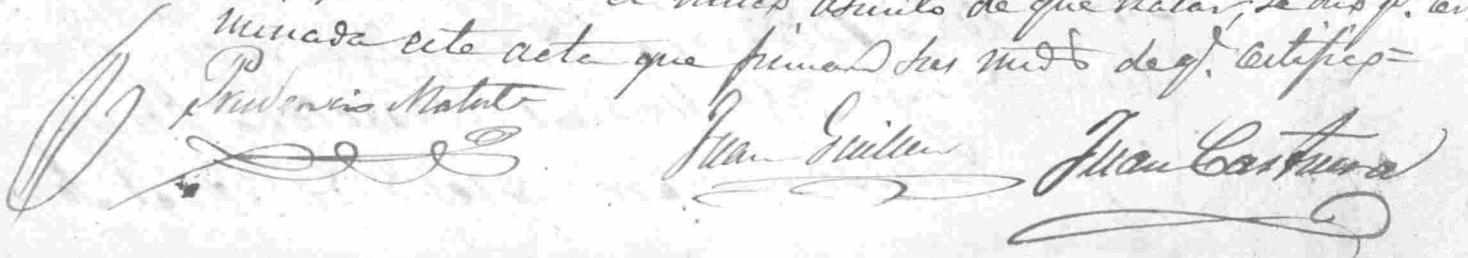 el unico asunto de que tratar, se dio p.r ter
minada este acta que firman sus mrds de q.e certifico=
Prudencio Matute
Juan Guillen Juan Castuera